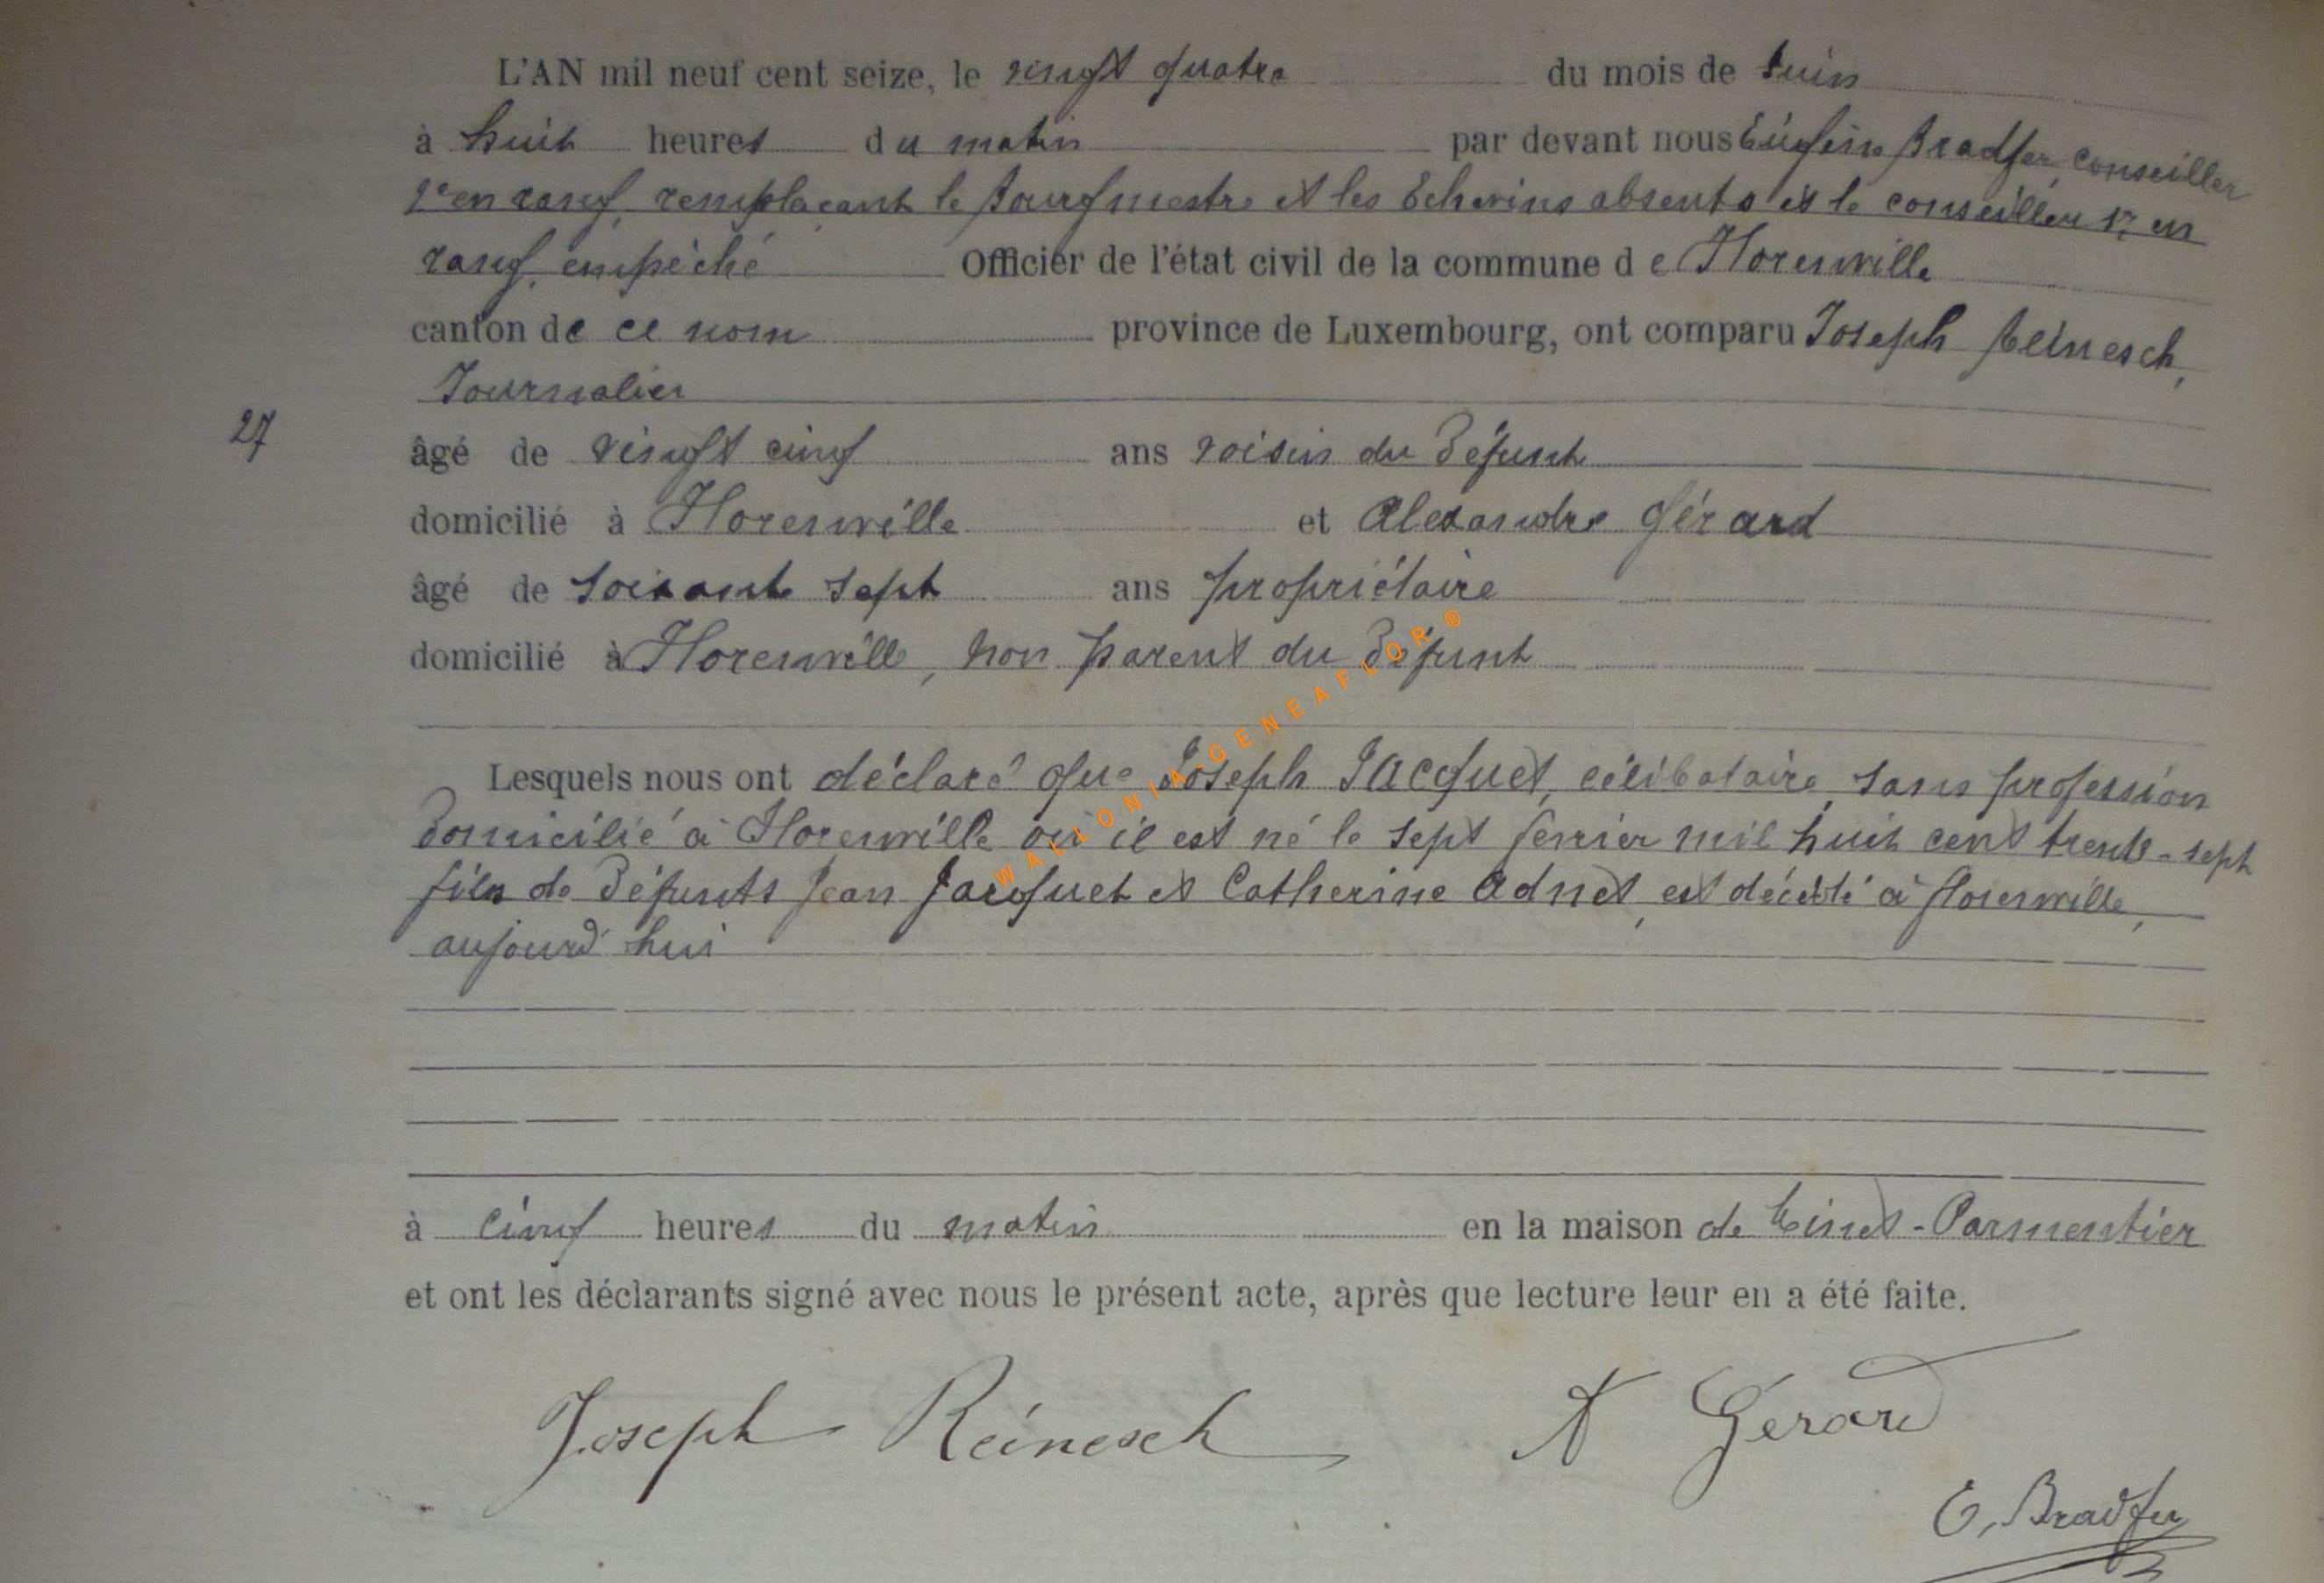 L'AN mil neuf cent seize, le vingt quatre du mois de Juin
à huit heures du matin par devant nous Eugène Bradfer, conseiller
2e en rang, remplaçant le Bourgmestre et les Echevins absents et le conseiller 1r en
rang, empêché Officier de l'état civil de la commune de Florenville
canton de ce nom province de Luxembourg, ont comparu Joseph Reinesch,
Journalier
27
âgé de vingt cinq ans voisin du Défunt
domicilié à Florenville et Alexandre Gérard
âgé de soixante sept ans propriétaire
domicilié à Florenville, non parent du Défunt
Lesquels nous ont déclaré que Joseph Jacquet, célibataire, sans profession
Domicilié à Florenville où il est né le sept février mil huit cent trente-sept
fils de Défunts Jean Jacquet et Catherine Adnet, est décédé à Florenville,
aujourd'hui
à cinq heures du matin en la maison de -Parmentier
et ont les déclarants signé avec nous le présent acte, après que lecture leur en a été faite.
Joseph Reinesch A Gérard
E. Bradfer
WALLONIA-GENEAFLOR ®